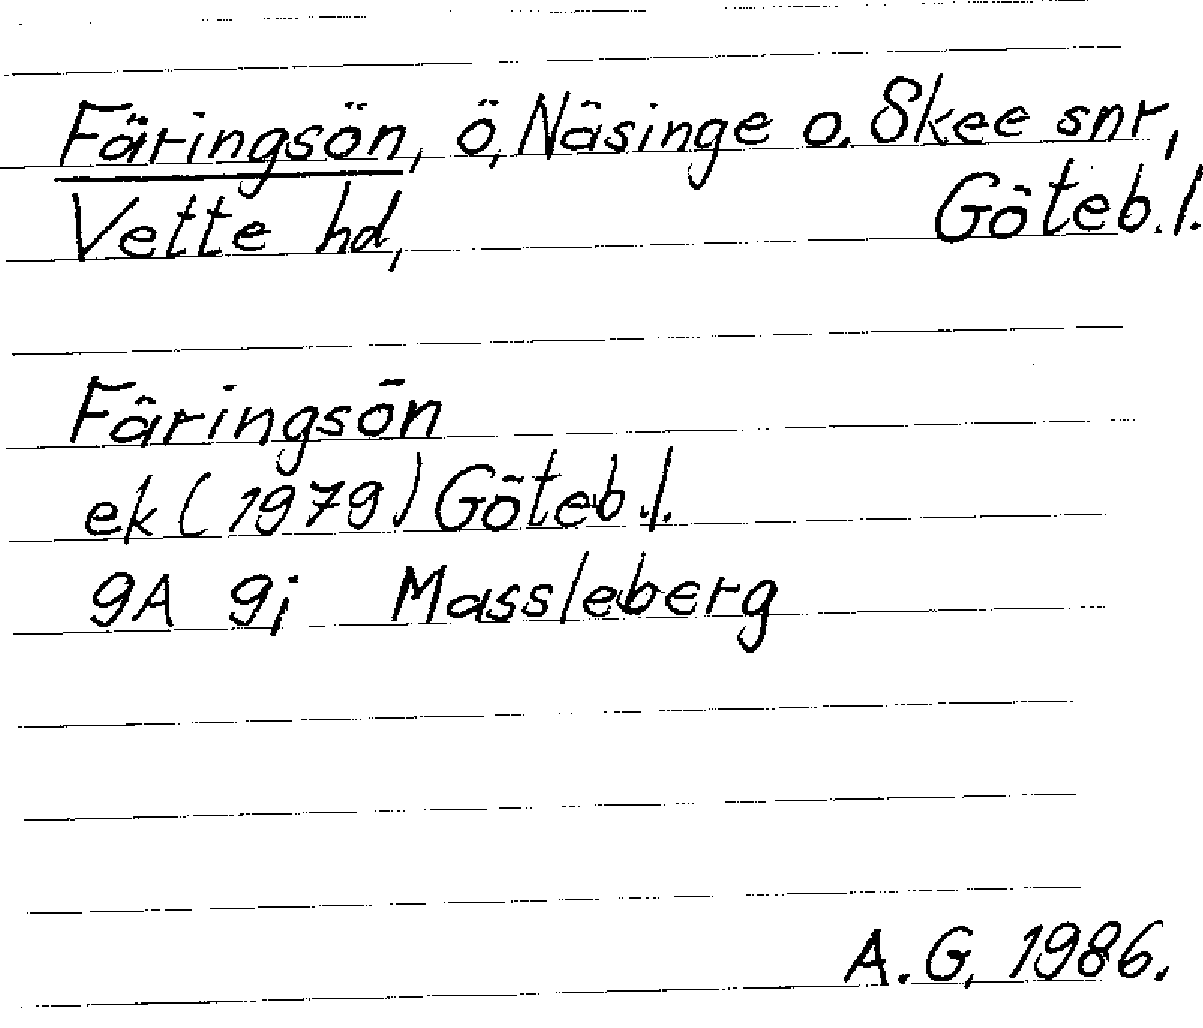 Färingsön, ö, Näsinge o. Skee snr,
Vette hd, Göteb. l.
Färingsön
ek (1979) Göteb. l.
9A 9i Massleberg
A. G, 1986.